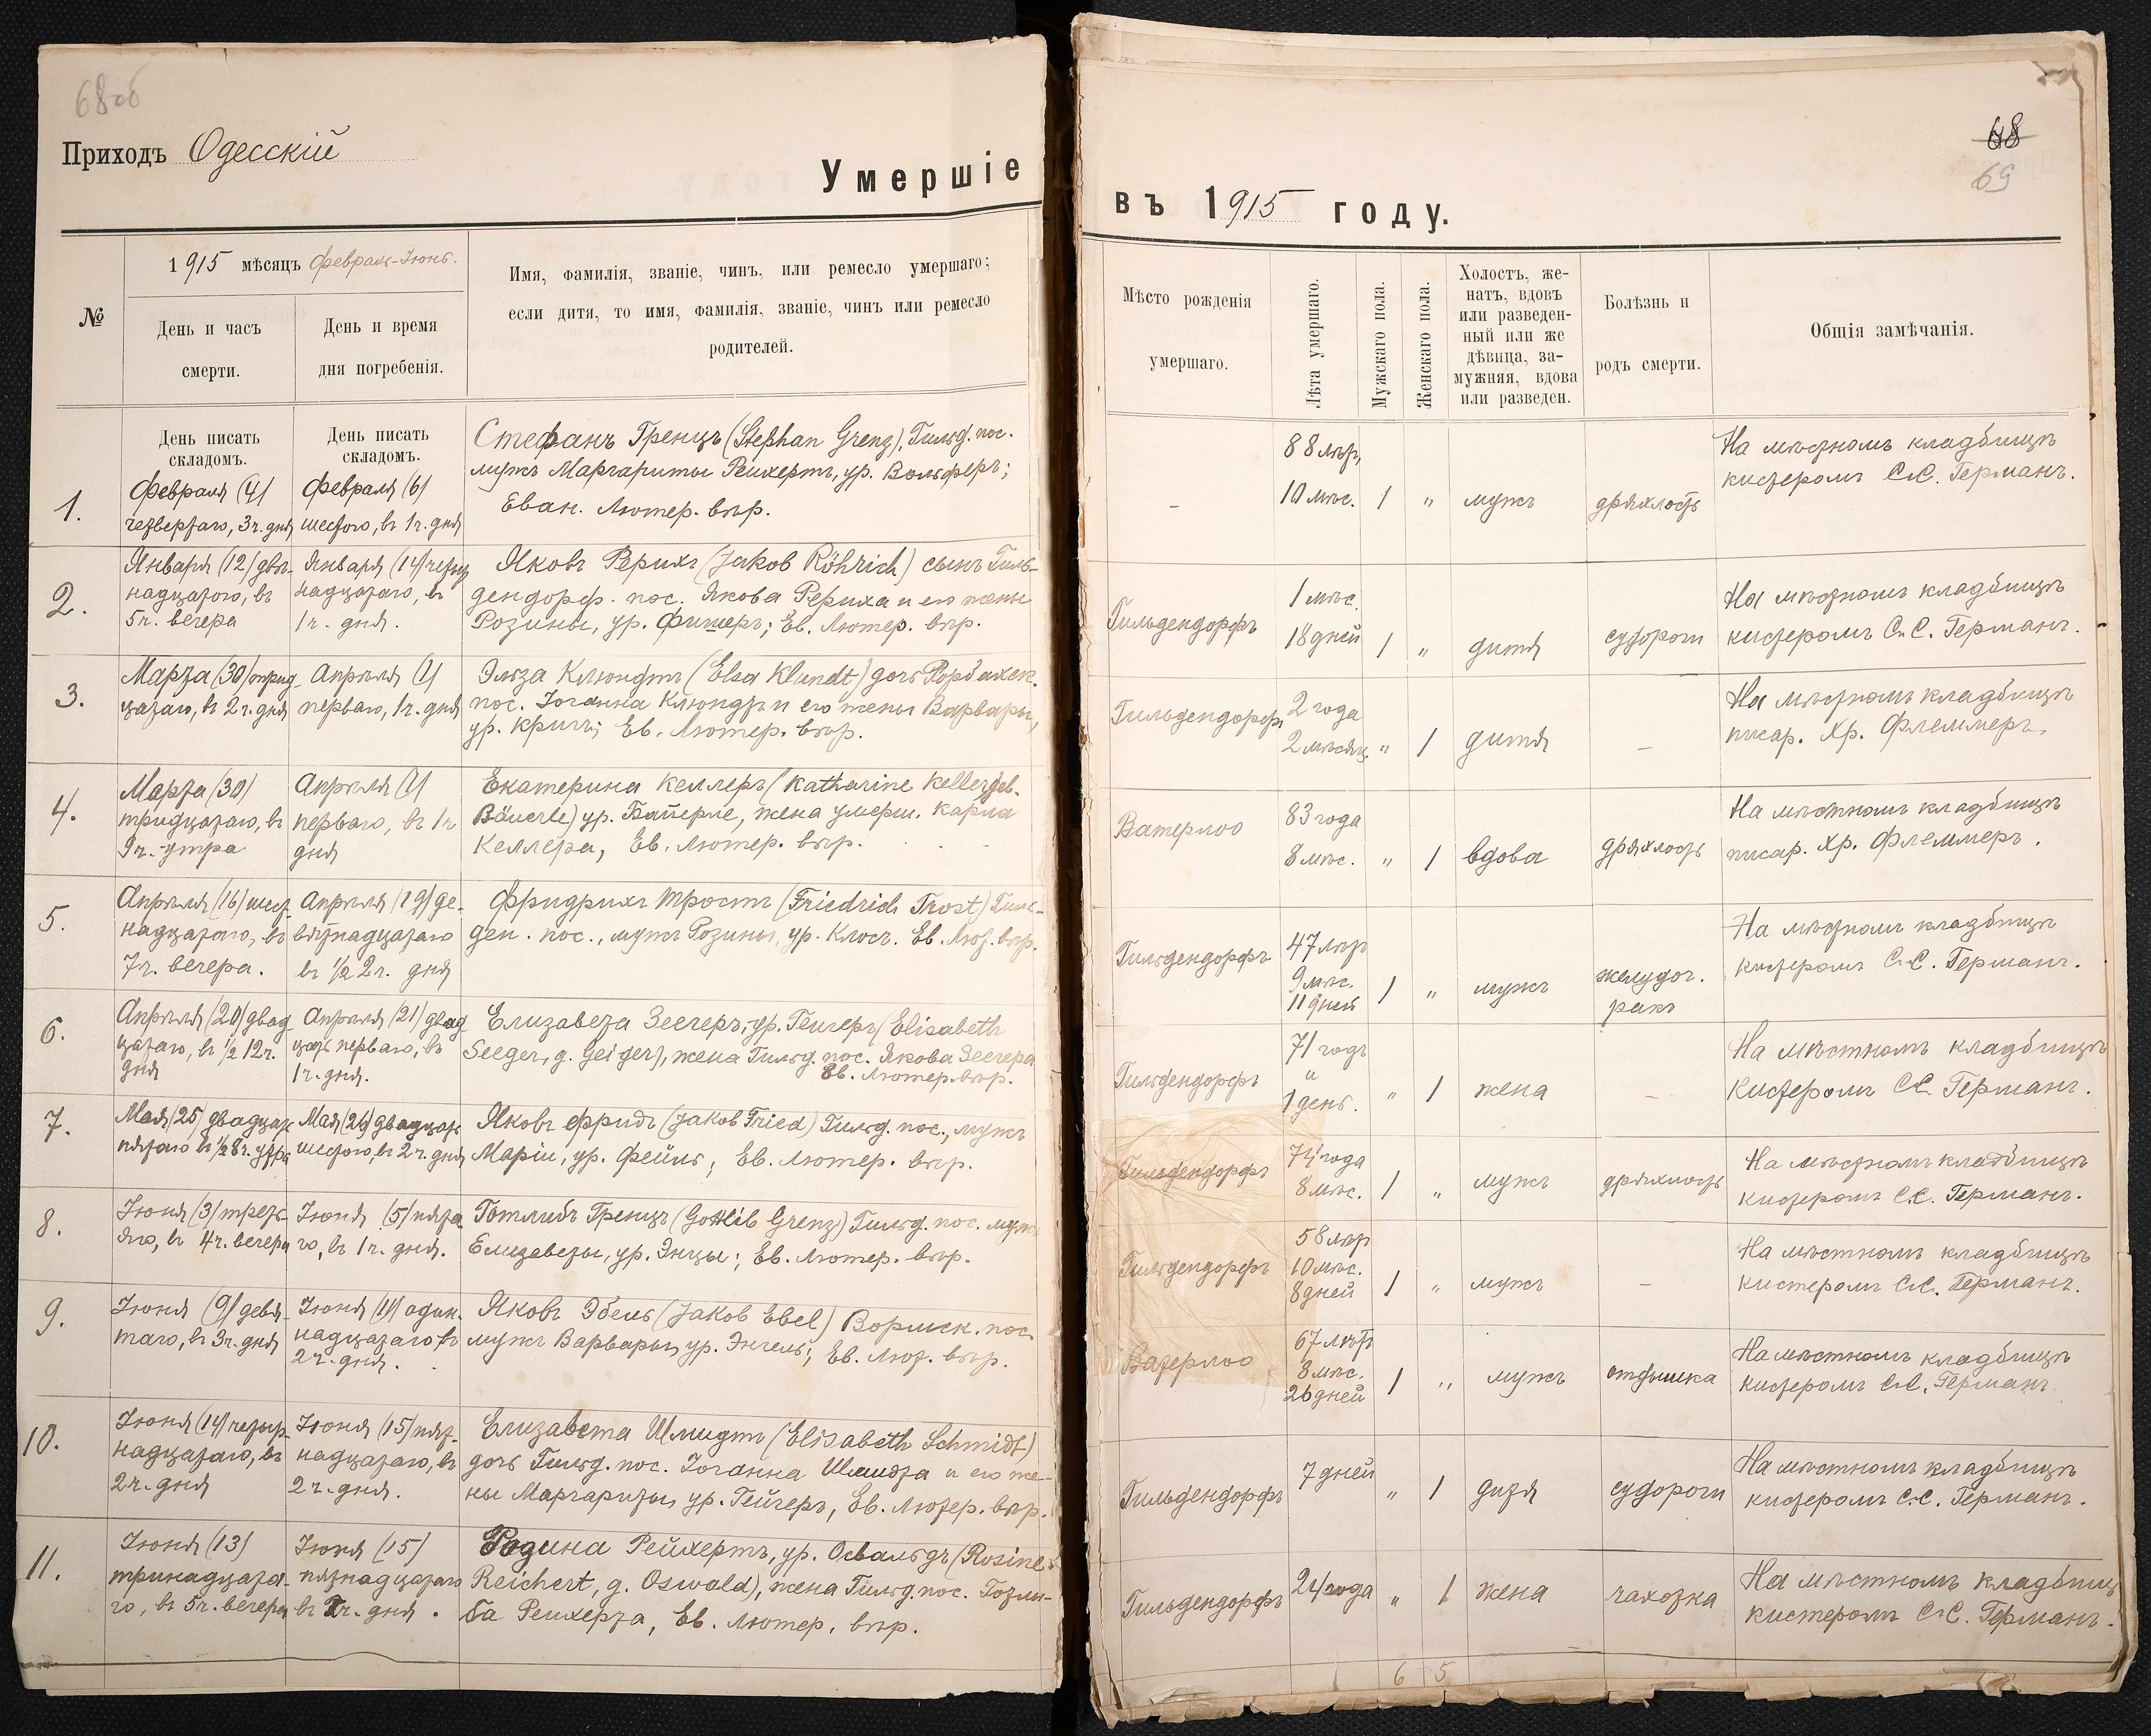 68об
Приходъ Одесскій
Умершіе
№
1915 мѣсяцъ Февраль-Іюнь.
День и часъ
смерти.
День и время
дня погребенія.
Имя, фамилія, званіе, чинъ, или ремесло умершаго;
если дитя, то имя, фамилія, званіе, чинъ или ремесло
родителей.
День писать
складомъ.
День писать
складомъ.
1.
Февраля (4)
четвертаго, 3 ч. дня
Февраля (6)
шестого, въ 1 ч. дня
Стефанъ Гренцъ (Stephan Grenz), Гильд. пос.
мужъ Маргариты Рейхертъ, ур. Вольферъ;
Еван. Лютер. вѣр.
2.
Января (12) двѣ-
надцатого, въ
5 ч. вечера
Января (14) четыр
надцатаго, въ
1 ч. дня.
Яковъ Рерихъ (Jakob Röhrich) сынъ Гиль-
дендорф. пос. Якова Рериха и его жены
Розины, ур. Фишеръ; Ев. Лютер. вѣр.
3.
Марта (30) трид-
цатаго, въ 2 ч. дня
Апрѣля (1)
перваго, 1 ч. дня
Эльза Клюндтъ (Elsa Klundt) дочь Рорбахск.
пос. Іоганна Клюндтъ и его жены Варвары,
ур. Кригъ; Ев. Лютер. вѣр.
4.
Марта (30)
тридцатаго, въ
9 ч. утра
Апрѣля (1)
перваго, въ 1 ч
дня
Екатерина Келлеръ (Katharine Keller geb.
Bäuerle) ур. Байерле, жена умерш. Карла
Келлера, Ев. Лютер. вѣр.
5.
Апрѣля (16) шест-
надцатаго, въ
7 ч. вечера.
Апрѣля (19) де-
вятнадцатаго
въ 1/2 2 ч. дня
Фридрихъ Тростъ (Friedrich Trost) Гиль-
ден. пос., мужъ Розины, ур. Клосъ. Ев. Лют. вѣр.
6.
Апрѣля (20) двад-
цатаго, въ 1/2 12 ч.
дня
Апрѣля (21) двад
цать перваго, въ
1 ч. дня.
Елизавета Зеегеръ, ур. Гейгеръ (Elisabeth
Seeger, g. Geiger), жена Гильд. пос. Якова Зеегера
Ев. Лютер. вѣр.
7.
Мая (25) двадцать
пятаго въ 1/2 8 ч. утра
Мая (26) двадцать
шестого, въ 2 ч. дня
Яковъ Фридъ (Jakob Fried) Гильд. пос., мужъ
Маріи, ур. Фейль; Ев. Лютер. вѣр.
8.
Іюня (3) треть-
яго, въ 4 ч. вечера
Іюня (5) пята
го, въ 1 ч. дня.
Готлибъ Гренцъ (Gottlib Grenz) Гильд. пос. мужъ
Елизаветы, ур. Энцы; Ев. Лютер. вѣр.
9.
Іюня (9) девя-
таго, въ 3 ч. дня
Іюня (11) один-
надцатаго въ
2 ч. дня.
Яковъ Эбель (Jakob Ebel) Вормск. пос.
мужъ Варвары, ур. Энгель; Ев. Лют. вѣр.
10.
Іюня (14) четыр-
надцатаго, въ
2 ч. дня
Іюня (15) пят-
надцатаго, въ
2 ч. дня.
Елизавета Шмидтъ (Elisabeth Schmidt)
дочь Гильд. пос. Іоганна Шмидта и его же-
ны Маргариты, ур. Гейгеръ, Ев. Лютер. вѣр.
11.
Іюня (13)
тринадцата-
го, въ 5 ч. вечера
Іюня (15)
пятнадцатаго
въ ч. дня.
Розина Рейхертъ, ур. Освальдъ (Rosine
Reichert, g. Oswald), жена Гильд. пос. Готли-
ба Рейхерта, Ев. Лютер. вѣр.
68
69
въ 1915 году.
Мѣсто рожденія
умершаго.
Лѣта умершаго.
Мужскаго пола.
Женскаго пола.
Холостъ, же-
натъ, вдовъ
или разведен-
ный или же
дѣвица, за-
мужняя, вдова
или разведен.
Болѣзнь и
родъ смерти.
Общія замѣчанія.
–
88 лѣт,
10 мѣс.
1 " мужъ дряхлость
На мѣстномъ кладбищѣ
кистеромъ С.С. Германъ.
Гильдендорфъ
1 мѣс.
18 дней
1 " дитя судороги
На мѣстномъ кладбищѣ
кистеромъ С.С. Германъ.
Гильдендорфъ
2 года
2 мѣсяц.
" 1 дитя –
На мѣстномъ кладбищѣ
писар. Хр. Флеммеръ.
Ватерлоо
83 года
8 мѣс.
" 1 вдова дряхлость
На мѣстномъ кладбищѣ
писар. Хр. Флеммеръ.
Гильдендорфъ
47 лѣтъ
9 мѣс.
11 дней
1 " мужъ
желудоч.
ракъ
На мѣстномъ кладбищѣ
кистеромъ С.С. Германъ.
Гильдендорфъ
71 годъ
и
1 день.
" 1 жена –
На мѣстномъ кладбищѣ
кистеромъ С.С. Германъ.
Гильдендорфъ
74 года
8 мѣс.
1 " мужъ дряхлость
На мѣстномъ кладбищѣ
кистеромъ С.С. Германъ.
Гильдендорфъ
58 лѣт
10 мѣс.
8 дней
1 " мужъ –
На мѣстномъ кладбищѣ
кистеромъ С.С. Германъ.
Ватерлоо
67 лѣтъ
8 мѣс.
26 дней
1 " мужъ отдышка
На мѣстномъ кладбищѣ
кистеромъ С.С. Германъ.
Гильдендорфъ
7 дней
" 1 дитя судороги
На мѣстномъ кладбищѣ
кистеромъ С.С. Германъ.
Гильдендорфъ
24 года
" 1 жена чахотка
На мѣстномъ кладбищ
кистеромъ С.С. Германъ.
6 5